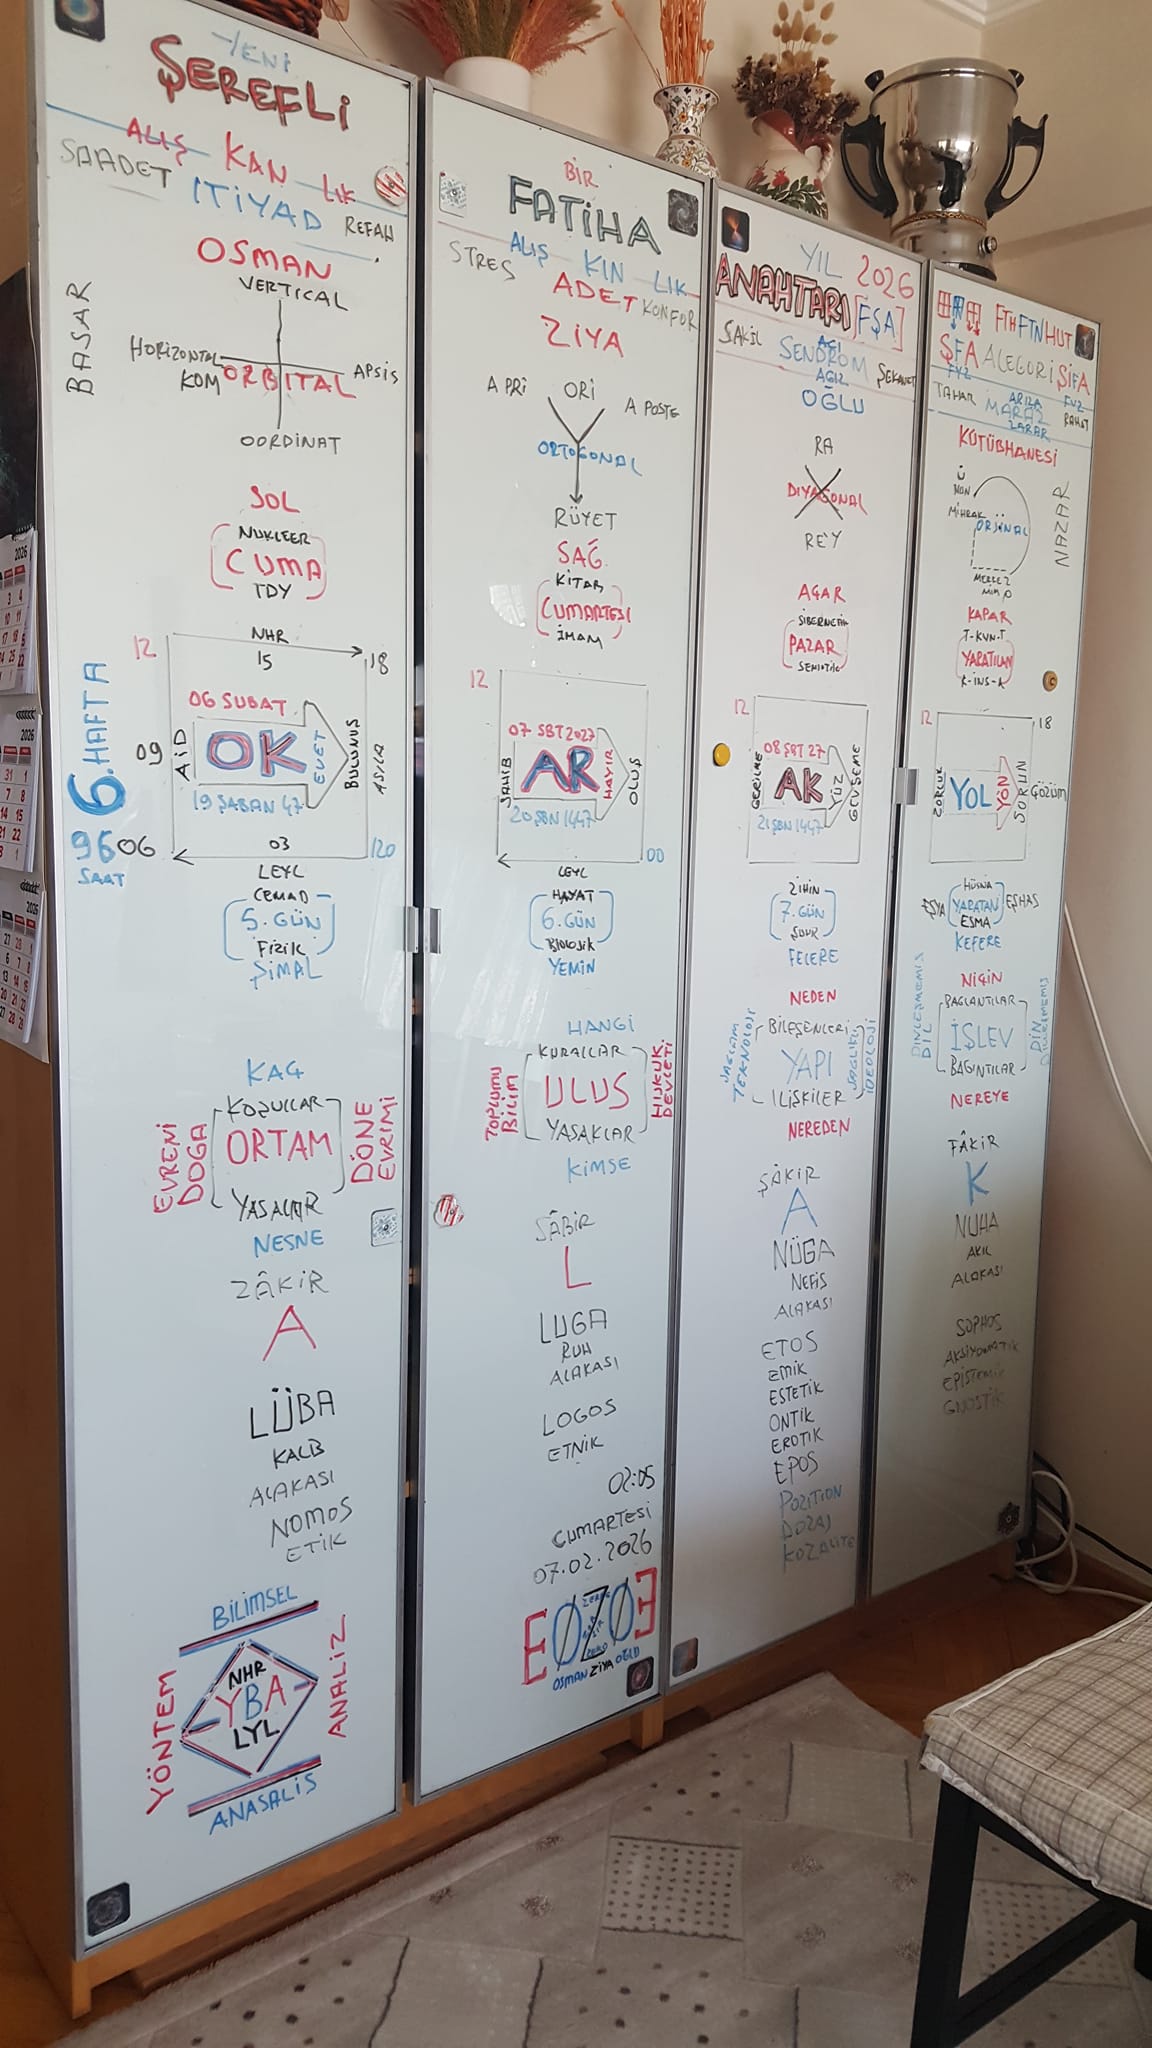 YENİ
ŞEREFLİ
ALIŞ KAN LIK
SAADET İTİYAD REFAH
OSMAN
VERTICAL
BASAR
HORIZONTAL
APSİS
KOM ORBITAL
OORDİNAT
SOL
NUKLEER
CUMA
TDY
NHR
12
15
18
6.HAFTA
06 SUBAT
09
AİD
OK
EVET
BULUNUŞ
ASILA
19 ŞABAN 47
96
SAAT
06
03
LEYL
CEMAD
5. GÜN
FİZİK
ŞİMAL
KAÇ
KOŞULLAR
EVRENİ
DOĞA
ORTAM
DÖNE
EVRİMİ
YASALAR
NESNE
ZÂKİR
A
LÜBA
KALB
ALAKASI
NOMOS
ETİK
BİLİMSEL
YÖNTEM
NHR
YBA
LYL
ANALİZ
ANASALİS
BİR
FATİHA
ALIŞ KIN LIK
STRES ADET KONFOR
ZİYA
A PRİ
ORİ
A POSTE
ORTOGONAL
RÜYET
SAĞ
KİTAB
CUMARTESİ
İMAM
12
07 ŞBT 2027
SAHİB
AR
HAYIR
OLUŞ
20 ŞBN 1447
00
LEYL
HAYAT
6. GÜN
BİOLOJİK
YEMİN
HANGİ
KURALLAR
TOPLUMU
BİLİM
ULUS
HUKUK
DEVLETİ
YASAKLAR
KİMSE
SÂBİR
L
LUGA
RUH
ALAKASI
LOGOS
ETNİK
02:05
CUMARTESİ
07.02.2026
OSMAN ZİYA OĞLU
YIL 2026
ANAHTARI [FŞA]
ŞAKİL
AÇI
SENDROM
AĞIZ
OĞLU
RA
DİYAGONAL
REY
AĞAR
SİBERNETİK
PAZAR
SEMİOTİK
12
08 ŞBT 27
GERİLME
AK
YÜZ
GEVŞEME
21 ŞBN 1447
ZİHİN
7. GÜN
ŞUUR
FECERE
NEDEN
BİLEŞENLERİ
SAĞLAM
TEKNOLOJİ
YAPI
SAĞLIKLI
İDEOLOJİ
İLİŞKİLER
NEREDEN
ŞÂKİR
A
NÜGA
NEFİS
ALAKASI
ETOS
EMİK
ESTETİK
ONTİK
EROTİK
EPOS
POZİTİON
DOZAJ
KOZALİTE
FTH FTN HUT
ŞFA ALEGORİ ŞİFA
TAHAR
ARIZA
MARAZ
ZARAR
RAHAT
KÜTÜBHANESİ
NAZAR
MİHRAK
ORJİNAL
MERKEZ
KAPAR
T-KUN-T
YARATILAN
K-İNS-A
12
18
ZORLUK
YOL
YÖN
SORUN
ÇÖZÜM
HÜSNA
EŞYA
YARATAN
EŞHAS
ESMA
KEFERE
NİÇİN
BAĞLANTILAR
DİNLEŞMEMİŞ
DİL
İŞLEV
DİN
BAĞINTILAR
NEREYE
FÂKİR
K
NUHA
AKIL
ALAKASI
SOPHOS
AKSİYOMATİK
EPİSTEMİK
GNOSTİK